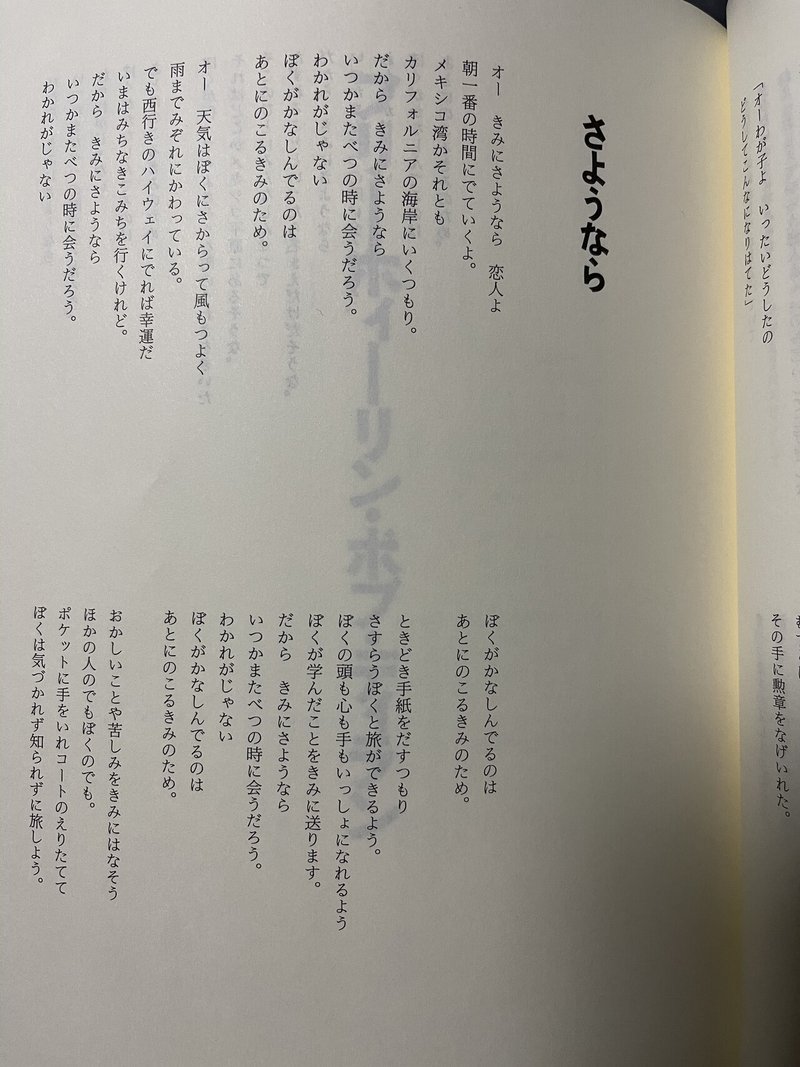 「オーわが子よ　いったいどうしたの
どうしてこんなになりはてた」
その手に勲章をなげいれた。
さようなら
オー　きみにさようなら　恋人よ
朝一番の時間にでていくよ。
メキシコ湾かそれとも
カリフォルニアの海岸にいくつもり。
だから　きみにさようなら
いつかまたべつの時に会うだろう。
わかれがじゃない
ぼくがかなしんでるのは
あとにのこるきみのため。
オー　天気はぼくにさからって風もつよく
雨までみぞれにかわっている。
でも西行きのハイウェイにでれば幸運だ
いまはみちなきこみちを行くけれど。
だから　きみにさようなら
いつかまたべつの時に会うだろう。
わかれがじゃない
ぼくがかなしんでるのは
あとにのこるきみのため。
ときどき手紙をだすつもり
さすらうぼくと旅ができるよう。
ぼくの頭も心も手もいっしょになれるよう
ぼくが学んだことをきみに送ります。
だから　きみにさようなら
いつかまたべつの時に会うだろう。
わかれがじゃない
ぼくがかなしんでるのは
あとにのこるきみのため。
おかしいことや苦しみをきみにはなそう
ほかの人のでもぼくのでも。
ポケットに手をいれコートのえりたてて
ぼくは気づかれず知られずに旅しよう。